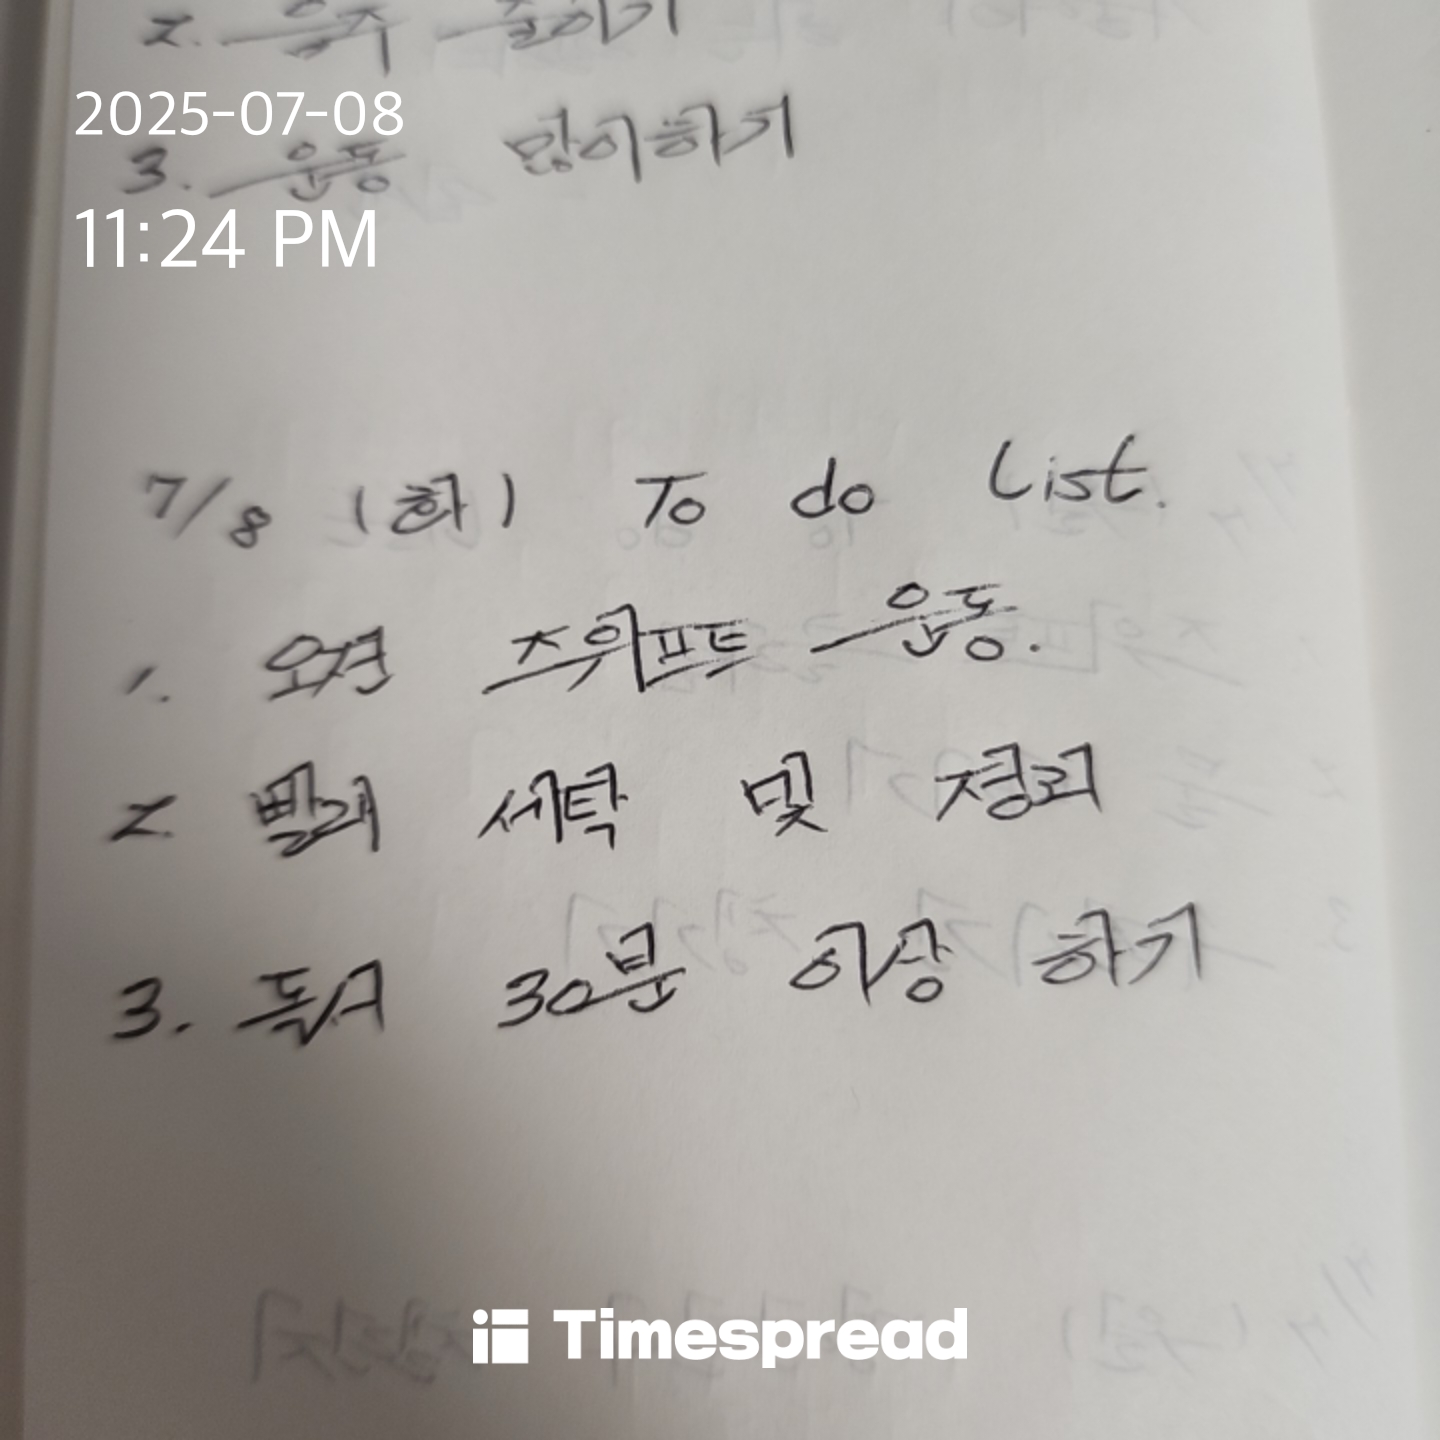 2. 음주 줄이기
2025-07-08
3. 운동 많이하기
11:24 PM
7/8 (화) To do List.
1. 오전 즈위프트 운동.
2. 빨래 세탁 및 정리
3. 독서 30분 이상 하기
Timespread